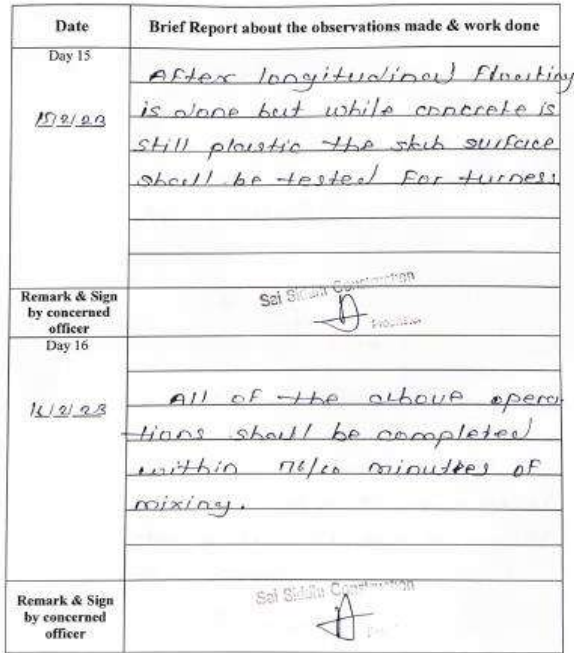 Date
Brief Report about the observations made & work done
Day 15
15/2/23
After longitudinal Floating
is done but while concrete is
still plastic the skib surface
shall be tested For turness
Remark & Sign
by concerned
officer
Sai Siddhi Construction
Day 16
16/2/23
All of the above opera
tions shall be completed
within minutes of
mixing.
Remark & Sign
by concerned
officer
Sai Siddhi Construction